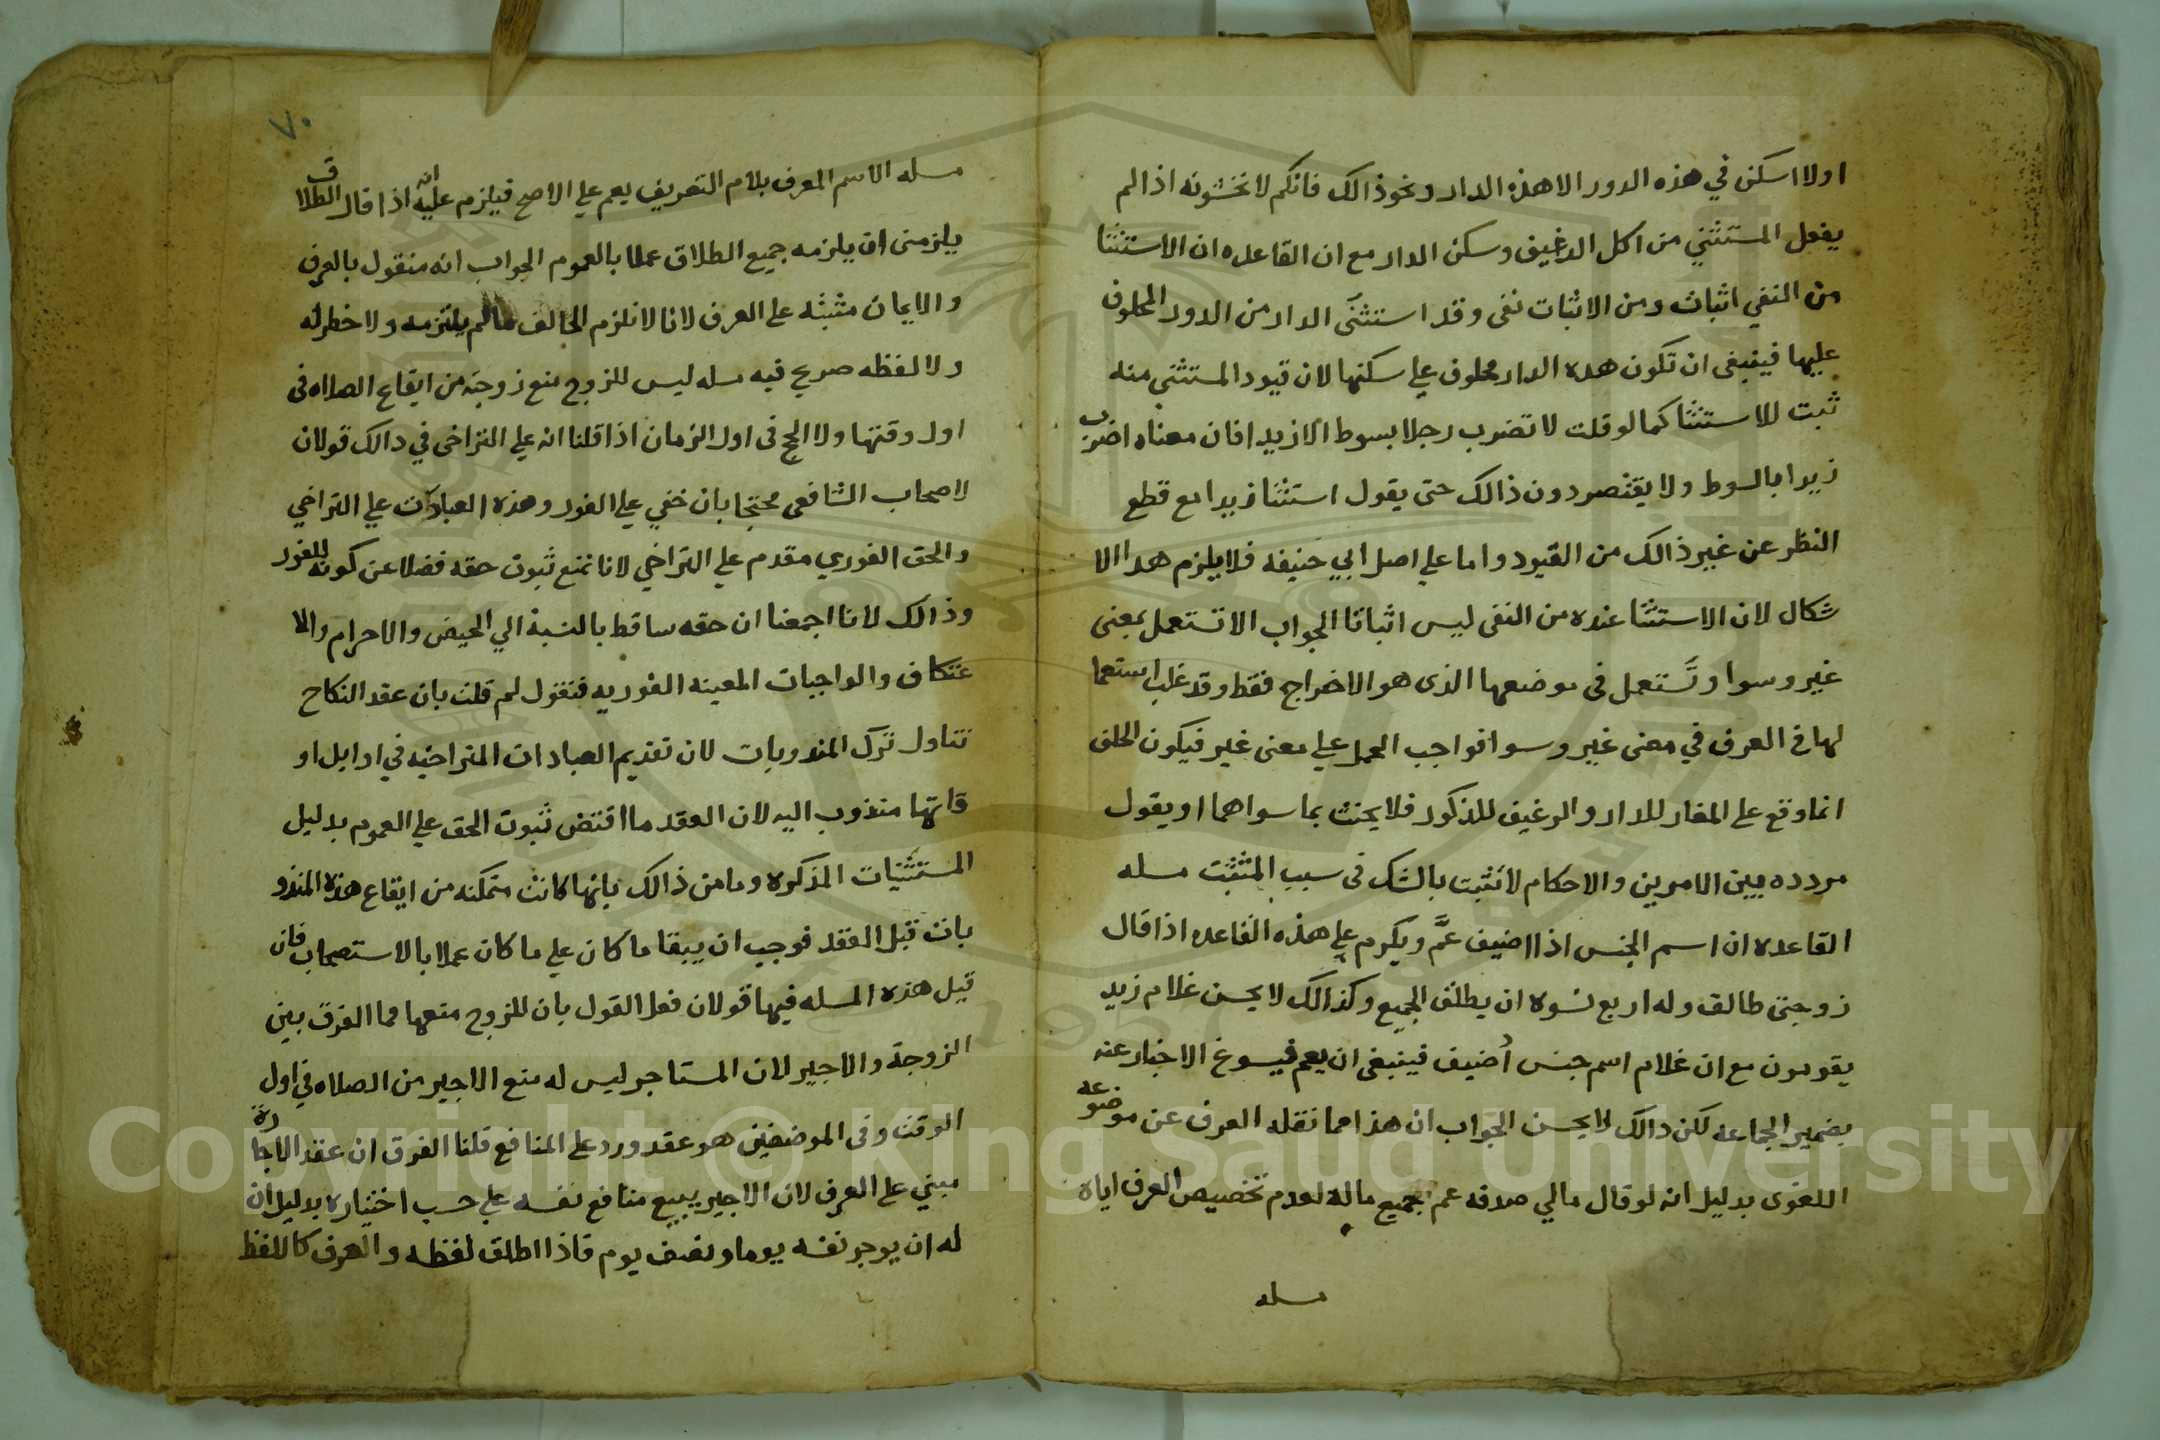 اولا اسكن في هذه الدور الا هذه الدار ونحو ذالك فانكم لا تحنثونه اذا لم
يفعل المستثني من اكل الرغيف وسكن الدار مع ان القاعده ان الاستثنا
من النفي اثبات ومن الاثبات نفى وقد استثنى الدار من الدور المحلوف
عليها فينبغى ان تكون هده الدار محلوف علي سكنها لان قيود المستثنى منه
ثبت للاستثنا كما لو قلت لا تضرب رجلا بسوط الا زيدا فان معناه اضرب
زيدا بالسوط ولا يقتصر دون ذالك حتى يقول استثنا زيدا مع قطع
النظر عن غير ذالك من القيود واما علي اصل ابي حنيفه فلا يلزم هدا الا
شكال لان الاستثنا عنده من النفى ليس اثباتا الجواب الا تستعمل بمعنى
غير وسوا وتستعمل فى موضعها الذى هو الاخراج فقط وقد غلب استعما
لها في العرف في معنى غير وسوا فواجب الحمل علي معنى غير فيكون الحلف
انما وقع على المغاير للدار والرغيف للذكور فلا يحنث بما سواهما او يقول
مردده بين الامرين والاحكام لا تثبت بالشك فى سبب المثبت مسله
القاعده ان اسم الجنس اذا اضيف عم ويكرم علي هذه القاعده اذا قال
زوجتى طالق وله اربع نسوه ان يطلق الجميع وكذالك لا يحسن غلام زيد
يقومون مع ان غلام اسم جنس أضيف فينبغى ان يعم فيسوغ الاخبار عنه
بضمير الجماعه لكن دالك لا يحسن الجواب ان هذا مما نقله العرف عن موضوعه
اللغوى بدليل انه لو قال مالي صدقه عم جميع ماله لعدم تخصيص العرف اياه
مسله
٧٠
مسله الاسم المعرف بلام التعريف يعم علي الاصح فيلزم عليه انه اذا قال الطلاق
يلزمنى ان يلزمه جميع الطلاق عملا بالعموم الجواب انه منقول بالعرف
والايمان مثبثه على العرف لانا لا نلزم الحالف مالم يلتزمه ولا خطر له
ولا لفظه صريح فيه مسله ليس للزوج منع زوجته من ايقاع الصلاه فى
اول وقتها ولا الحج فى اول الزمان اذا قلنا انه علي التراخى في دالك قولان
لاصحاب الشافعى محتجا بان حقي علي الفور وهذه العبادات علي التراخي
والحق الفوري مقدم علي التراخي لانا نمنع ثبوت حقه فضلا عن كونه للفور
وذالك لانا اجمعنا ان حقه ساقط بالنسبة الي الحيض والاحرام والا
عتكاف والواجبات المعينه الفوريه فنقول لم قلت بان عقد النكاح
تناول ترك المندوبات لان تقديم العبادات المتراخيه في اوايل او
قاتها مندوب اليه لان العقد ما اقتض ثبوت الحق علي العموم بدليل
المستثنيات المذكوره وما من ذالك بانها كانت متمكنه من ايقاع هذه المندو
بات قبل العقد فوجب ان يبقا ما كان علي ما كان عملا بالاستصحاب فان
قيل هذه المسله فيها قولان فعل القول بان للزوج منعها فما الفرق بين
الزوجة والاجير لان المستاجر ليس له منع الاجير من الصلاه في اول
الوقت وفى الموضعين هو عقد ورد على المنافع قلنا الفرق ان عقد الاجارة
مبني على العرف لان الاجير يبيع منافع نفسه علي حسب اختياره بدليل ان
له ان يوجر نفسه يوما ونصف يوم فاذا اطلق لفظه والعرف كاللفظ
Copyright © King Saud University